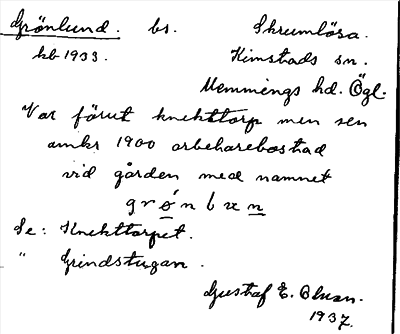 Grönlund. bs. Skrumlösa.
kb 1933. Kimstads sn.
Memmings hd. Ögl.
Var förut knekttorp men sen
omkr 1900 arbetarebostad
vid gården med namnet
grǿnlɯn
Se: Knekttorpet.
" Grindstugan.
Gustaf E. Olsson.
1937.